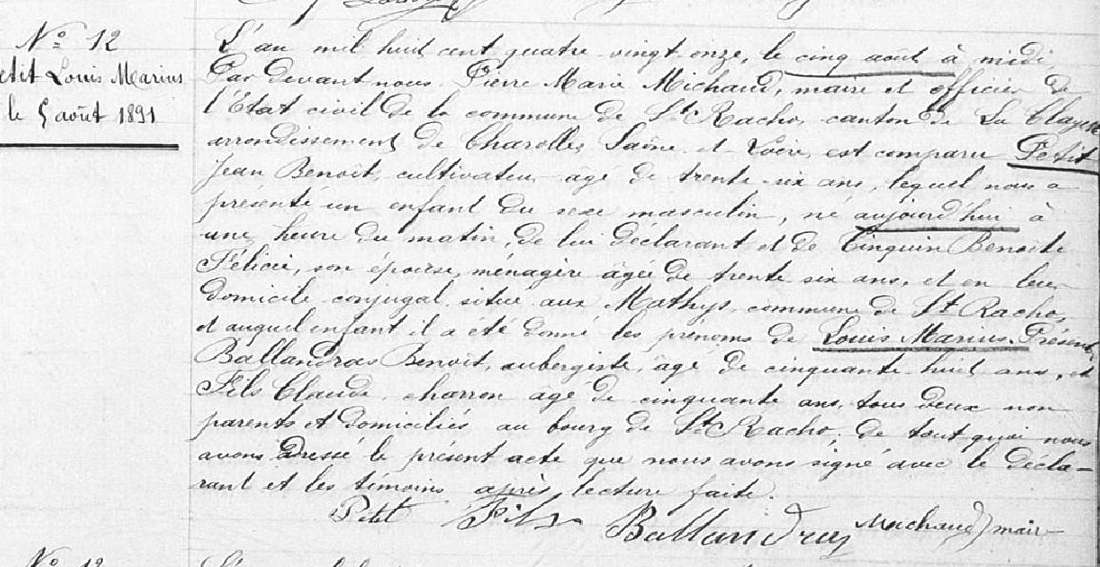 Nº 12
Petit Louis Marius
le 5 août 1891
L'an mil huit cent quatre-vingt-onze, le cinq août à midi,
Par devant nous Pierre Marie Michaud, maire et officier de
l'Etat civil de la commune de St Racho, canton de La Clayette
arrondissement de Charolles, Saône et Loire, est comparu Petit
Jean Benoît, cultivateur âgé de trente-six ans, lequel nous a
présenté un enfant du sexe masculin, né aujourd'hui à
une heure du matin, de lui déclarant et de Tinguin Benoite
Félicie, son épouse, ménagère âgée de trente six ans, et en leur
domicile conjugal situé aux Mathys, commune de St Racho,
et auquel enfant il a été donné les prénoms de Louis Marius. Présents
Ballandras Benoît, aubergiste, âgé de cinquante huit ans, et
Fils Claude, charron âgé de cinquante ans, tous deux non
parents et domiciliés au bourg de St Racho, de tout quoi nous
avons dressé le présent acte que nous avons signé avec le décla-
rant et les témoins après lecture faite.
Petit Fils Ballandras Michaud maire
Nº 13